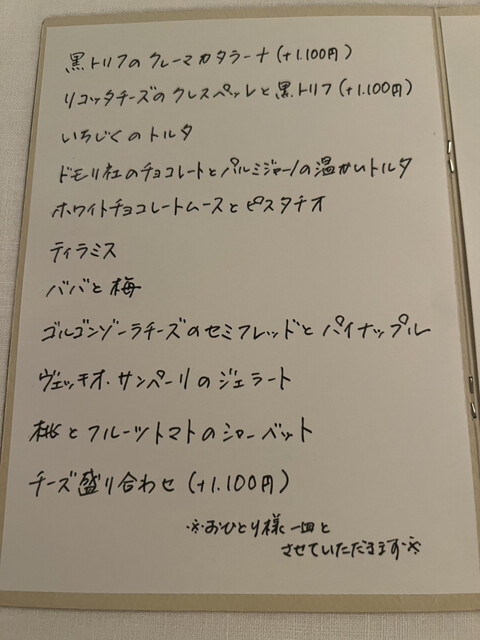 黒トリフのクレーマカタラーナ(+1.100円)
リコッタチーズのクレスペッレと黒トリフ(+1.100円)
いちじくのトルタ
ドモリ社のチョコレートとパルミジャーノの温かいトルタ
ホワイトチョコレートムースとピスタチオ
ティラミス
ババと梅
ゴルゴンゾーラチーズのセミフレッドとパイナップル
ヴェッキオ・サンペーリのジェラート
桃とフルーツトマトのシャーベット
チーズ盛り合わせ(+1.100円)
※おひとり様一皿と
させていただきます※